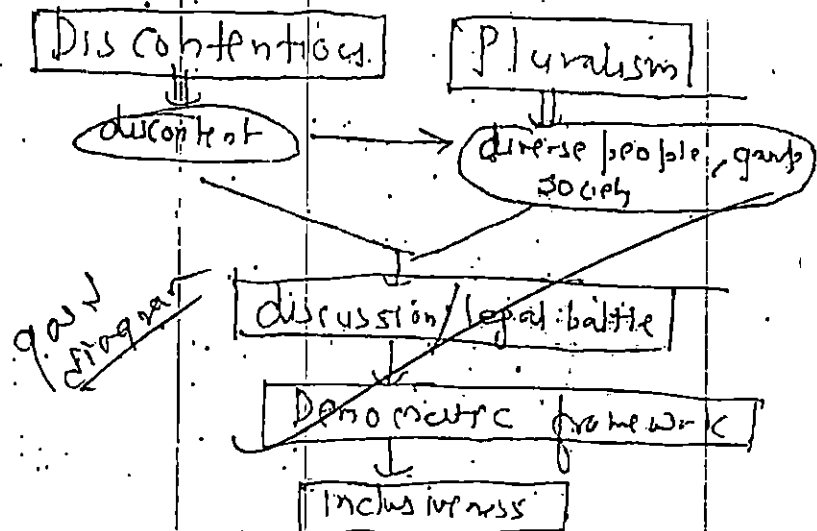 Discontentious
Pluralism
discontent
diverse people, group
society
good
diagram
discussion/legal battle
Democratic framework
Inclusiveness